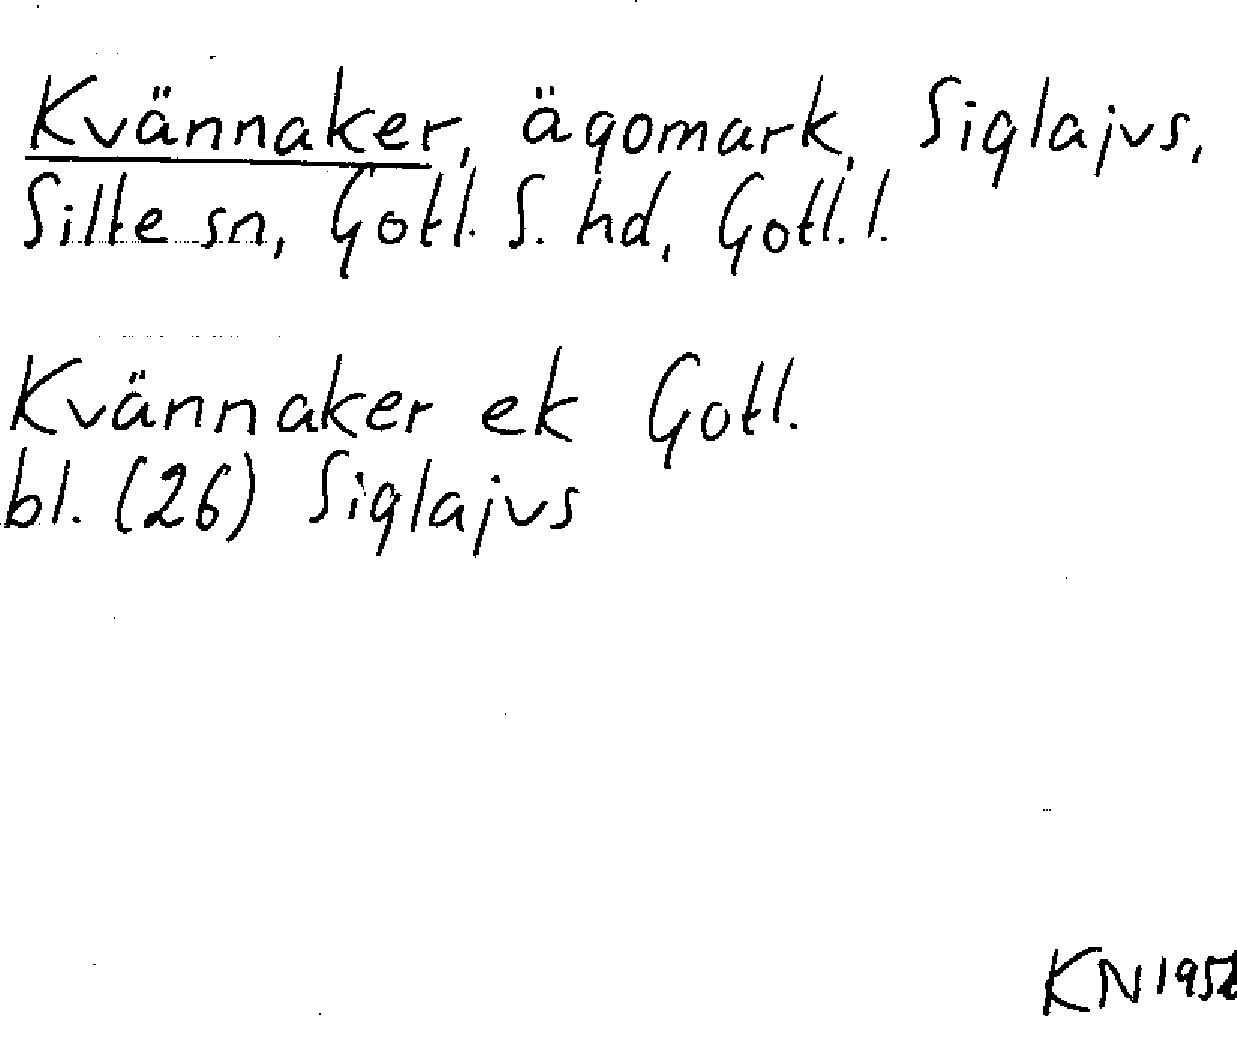 Kvännaker, ägomark, Siglajvs,
Silte sn, Gotl. S. hd, Gotl. l.
Kvännaker ek Gotl.
bl. (26) Siglajvs
KN